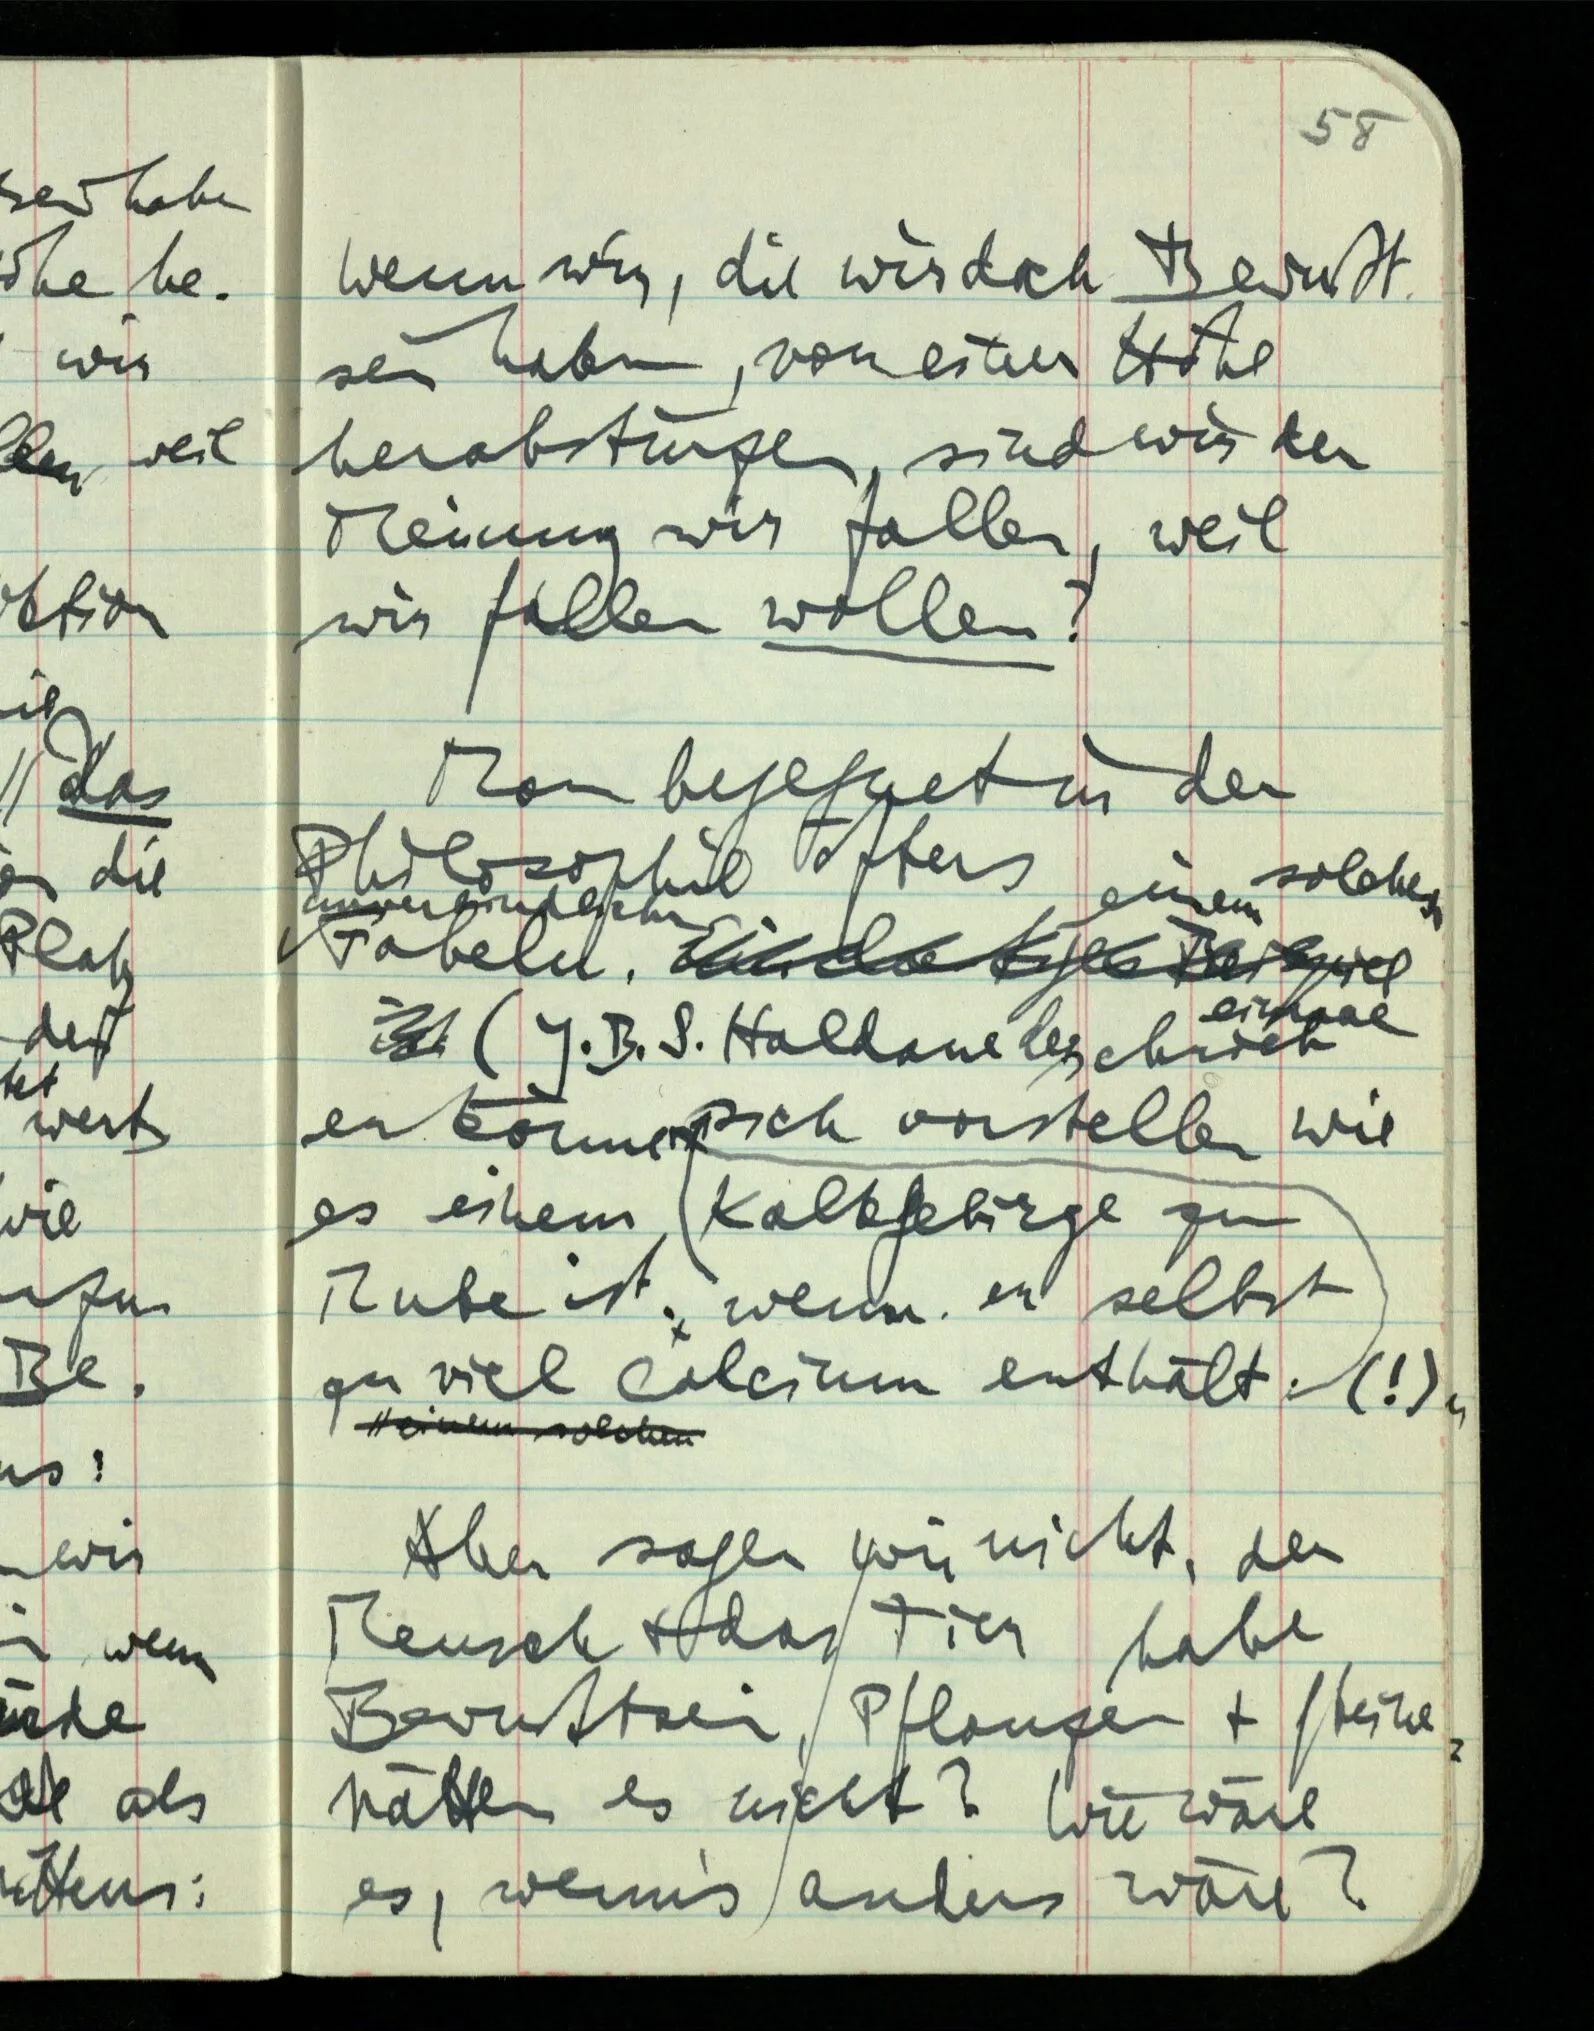 58
sein haben
Höhe he.
wir
weil
wir
das
die
wie
Be.
wir
wenn
als
wenn wir, die wir doch Bewußt.
sein haben, von einer Höhe
herabstürzen, sind wir der
Meinung wir fallen, weil
wir fallen wollen?
Man begegnet in der
Philosophie öfters einem solchen
unverbindlichen
Fabeln. Eindeutiges Beispiel
ist (J.B.S. Haldane beschrieb einmal
er könne sich vorstellen wie
es einem Kalkgebirge zu
Mute ist, wenn er selbst
zu viel Calcium enthält. (!)
// einem solchen
Aber sagen wir nicht, der
Mensch + das Tier habe
Bewußtsein, Pflanzen + Steine
hätten es nicht? Wie wäre
es, wenn's anders wäre?